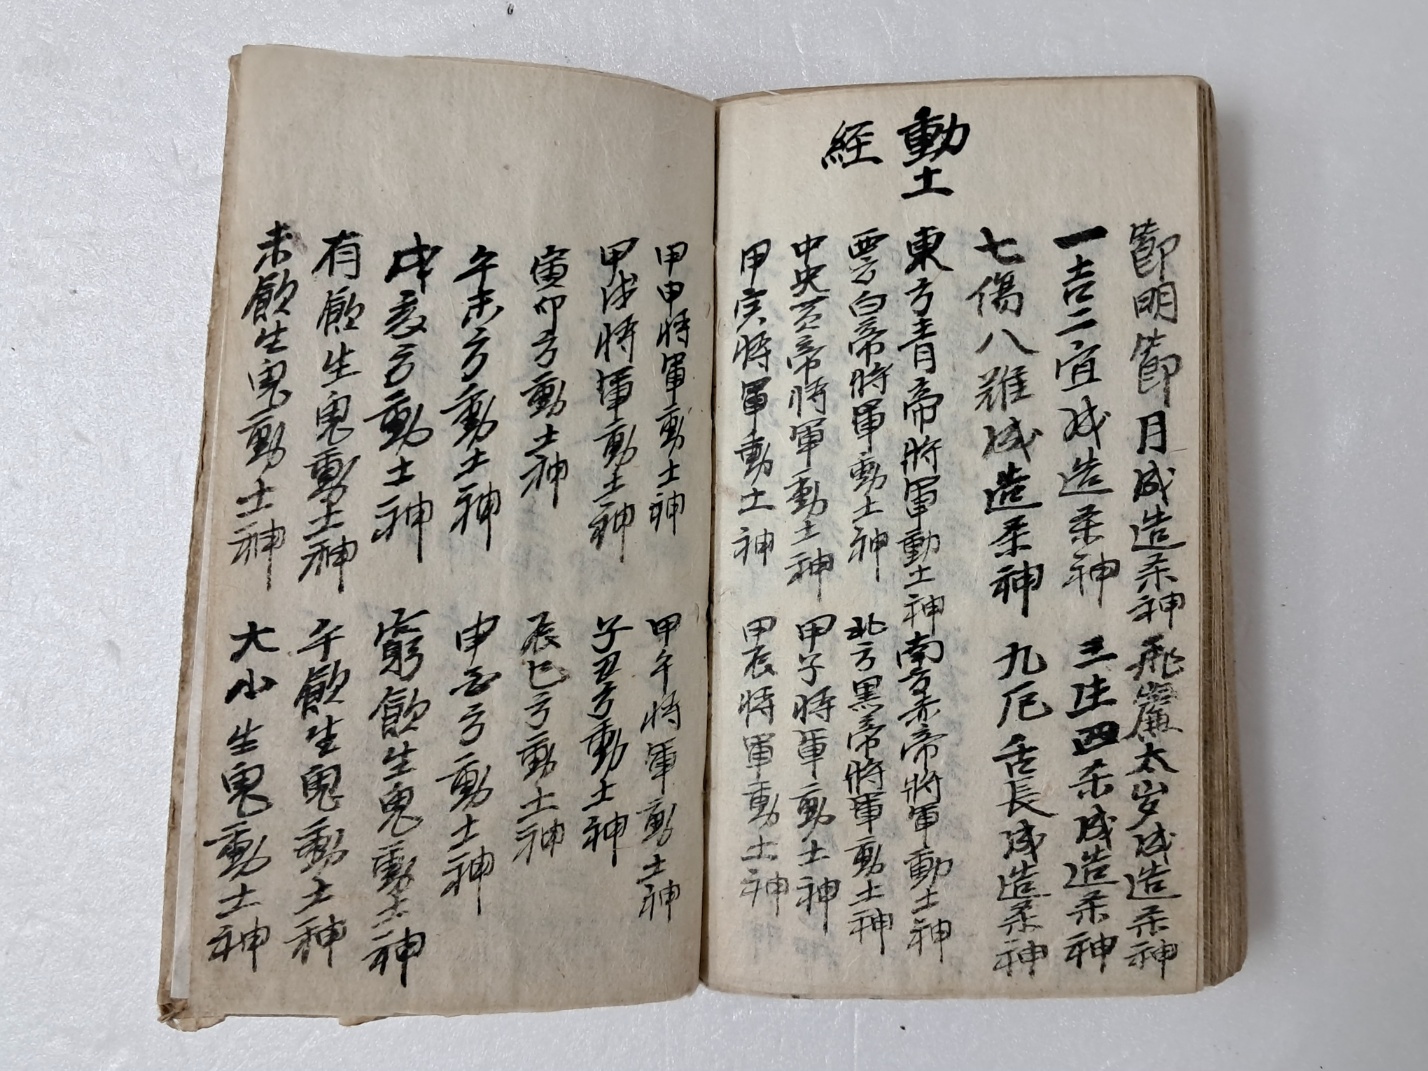 節明節月成造柔神 飛廉太岁成造柔神
一吉二宜成造柔神 三生四柔成造柔神
七傷八难成造柔神 九厄舌長成造柔神
動土
經
東方青帝將軍動土神 南方赤帝將軍動土神
白帝將軍動土神 北方黑帝將軍動土神
中央黄帝將軍動土神 甲子將軍動土神
甲寅將軍動土神 甲辰將軍動土神
甲申將軍動土神 甲午將軍動土神
甲戌將軍動土神 子丑方動土神
寅卯方動土神 辰巳方動土神
午未方動土神 申酉方動土神
戌亥方動土神 窮飲生鬼動土神
有飲生鬼動土神 午飲生鬼動土神
未飲生鬼動土神 大小生鬼動土神